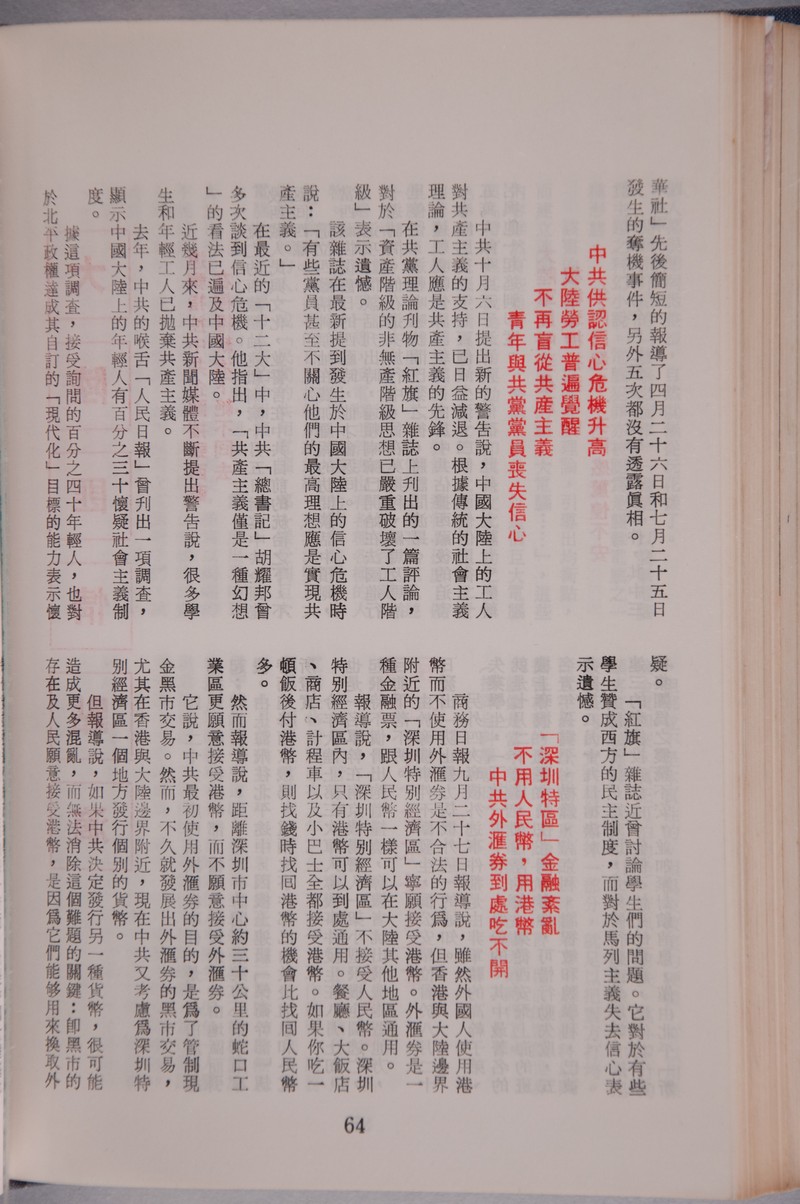 華社」先後簡短的報導了四月二十六日和七月二十五日
發生的奪機事件，另外五次都沒有透露眞相。
中共供認信心危機升高
大陸勞工普遍覺醒
不再盲從共產主義
青年與共黨黨員喪失信心
中共十月六日提出新的警告說，中國大陸上的工人
對共產主義的支持，已日益減退。根據傳統的社會主義
理論，工人應是共產主義的先鋒。
在共黨理論刋物「紅旗」雜誌上刋出的一篇評論，
對於「資產階級的非無產階級思想已嚴重破壞了工人階
級」表示遺憾。
該雜誌在最新提到發生於中國大陸上的信心危機時
說：「有些黨員甚至不關心他們的最高理想應是實現共
產主義。」
在最近的「十二大」中，中共「總書記」胡耀邦曾
多次談到信心危機。他指出，「共產主義僅是一種幻想
」的看法已遍及中國大陸。
近幾月來，中共新聞媒體不斷提出警告說，很多學
生和年輕工人已拋棄共產主義。
去年，中共的喉舌「人民日報」曾刋出一項調查，
顯示中國大陸上的年輕人有百分之三十懷疑社會主義制
度。
據這項調查，接受詢問的百分之四十年輕人，也對
於北平政權達成其自訂的「現代化」目標的能力表示懷
疑。
「紅旗」雜誌近曾討論學生們的問題。它對於有些
學生贊成西方的民主制度，而對於馬列主義失去信心表
示遺憾。
「深圳特區」金融紊亂
不用人民幣，用港幣
中共外滙券到處吃不開
商務日報九月二十七日報導說，雖然外國人使用港
幣而不使用外滙券是不合法的行爲，但香港與大陸邊界
附近的「深圳特別經濟區」寧願接受港幣。外滙券是一
種金融票，跟人民幣一樣可以在大陸其他地區通用。
報導說，「深圳特別經濟區」不接受人民幣。深圳
特別經濟區內，只有港幣可以到處通用。餐廳、大飯店
、商店、計程車以及小巴士全都接受港幣。如果你吃一
頓飯後付港幣，則找錢時找囘港幣的機會比找囘人民幣
多。
然而報導說，距離深圳市中心約三十公里的蛇口工
業區更願意接受港幣，而不願意接受外滙券。
它說，中共最初使用外滙券的目的，是爲了管制現
金黑市交易。然而，不久就發展出外滙券的黑市交易，
尤其在香港與大陸邊界附近，現在中共又考慮爲深圳特
別經濟區一個地方發行個別的貨幣。
但報導說，如果中共決定發行另一種貨幣，很可能
造成更多混亂，而無法消除這個難題的關鍵：卽黑市的
存在及人民願意接受港幣，是因爲它們能够用來換取外
64